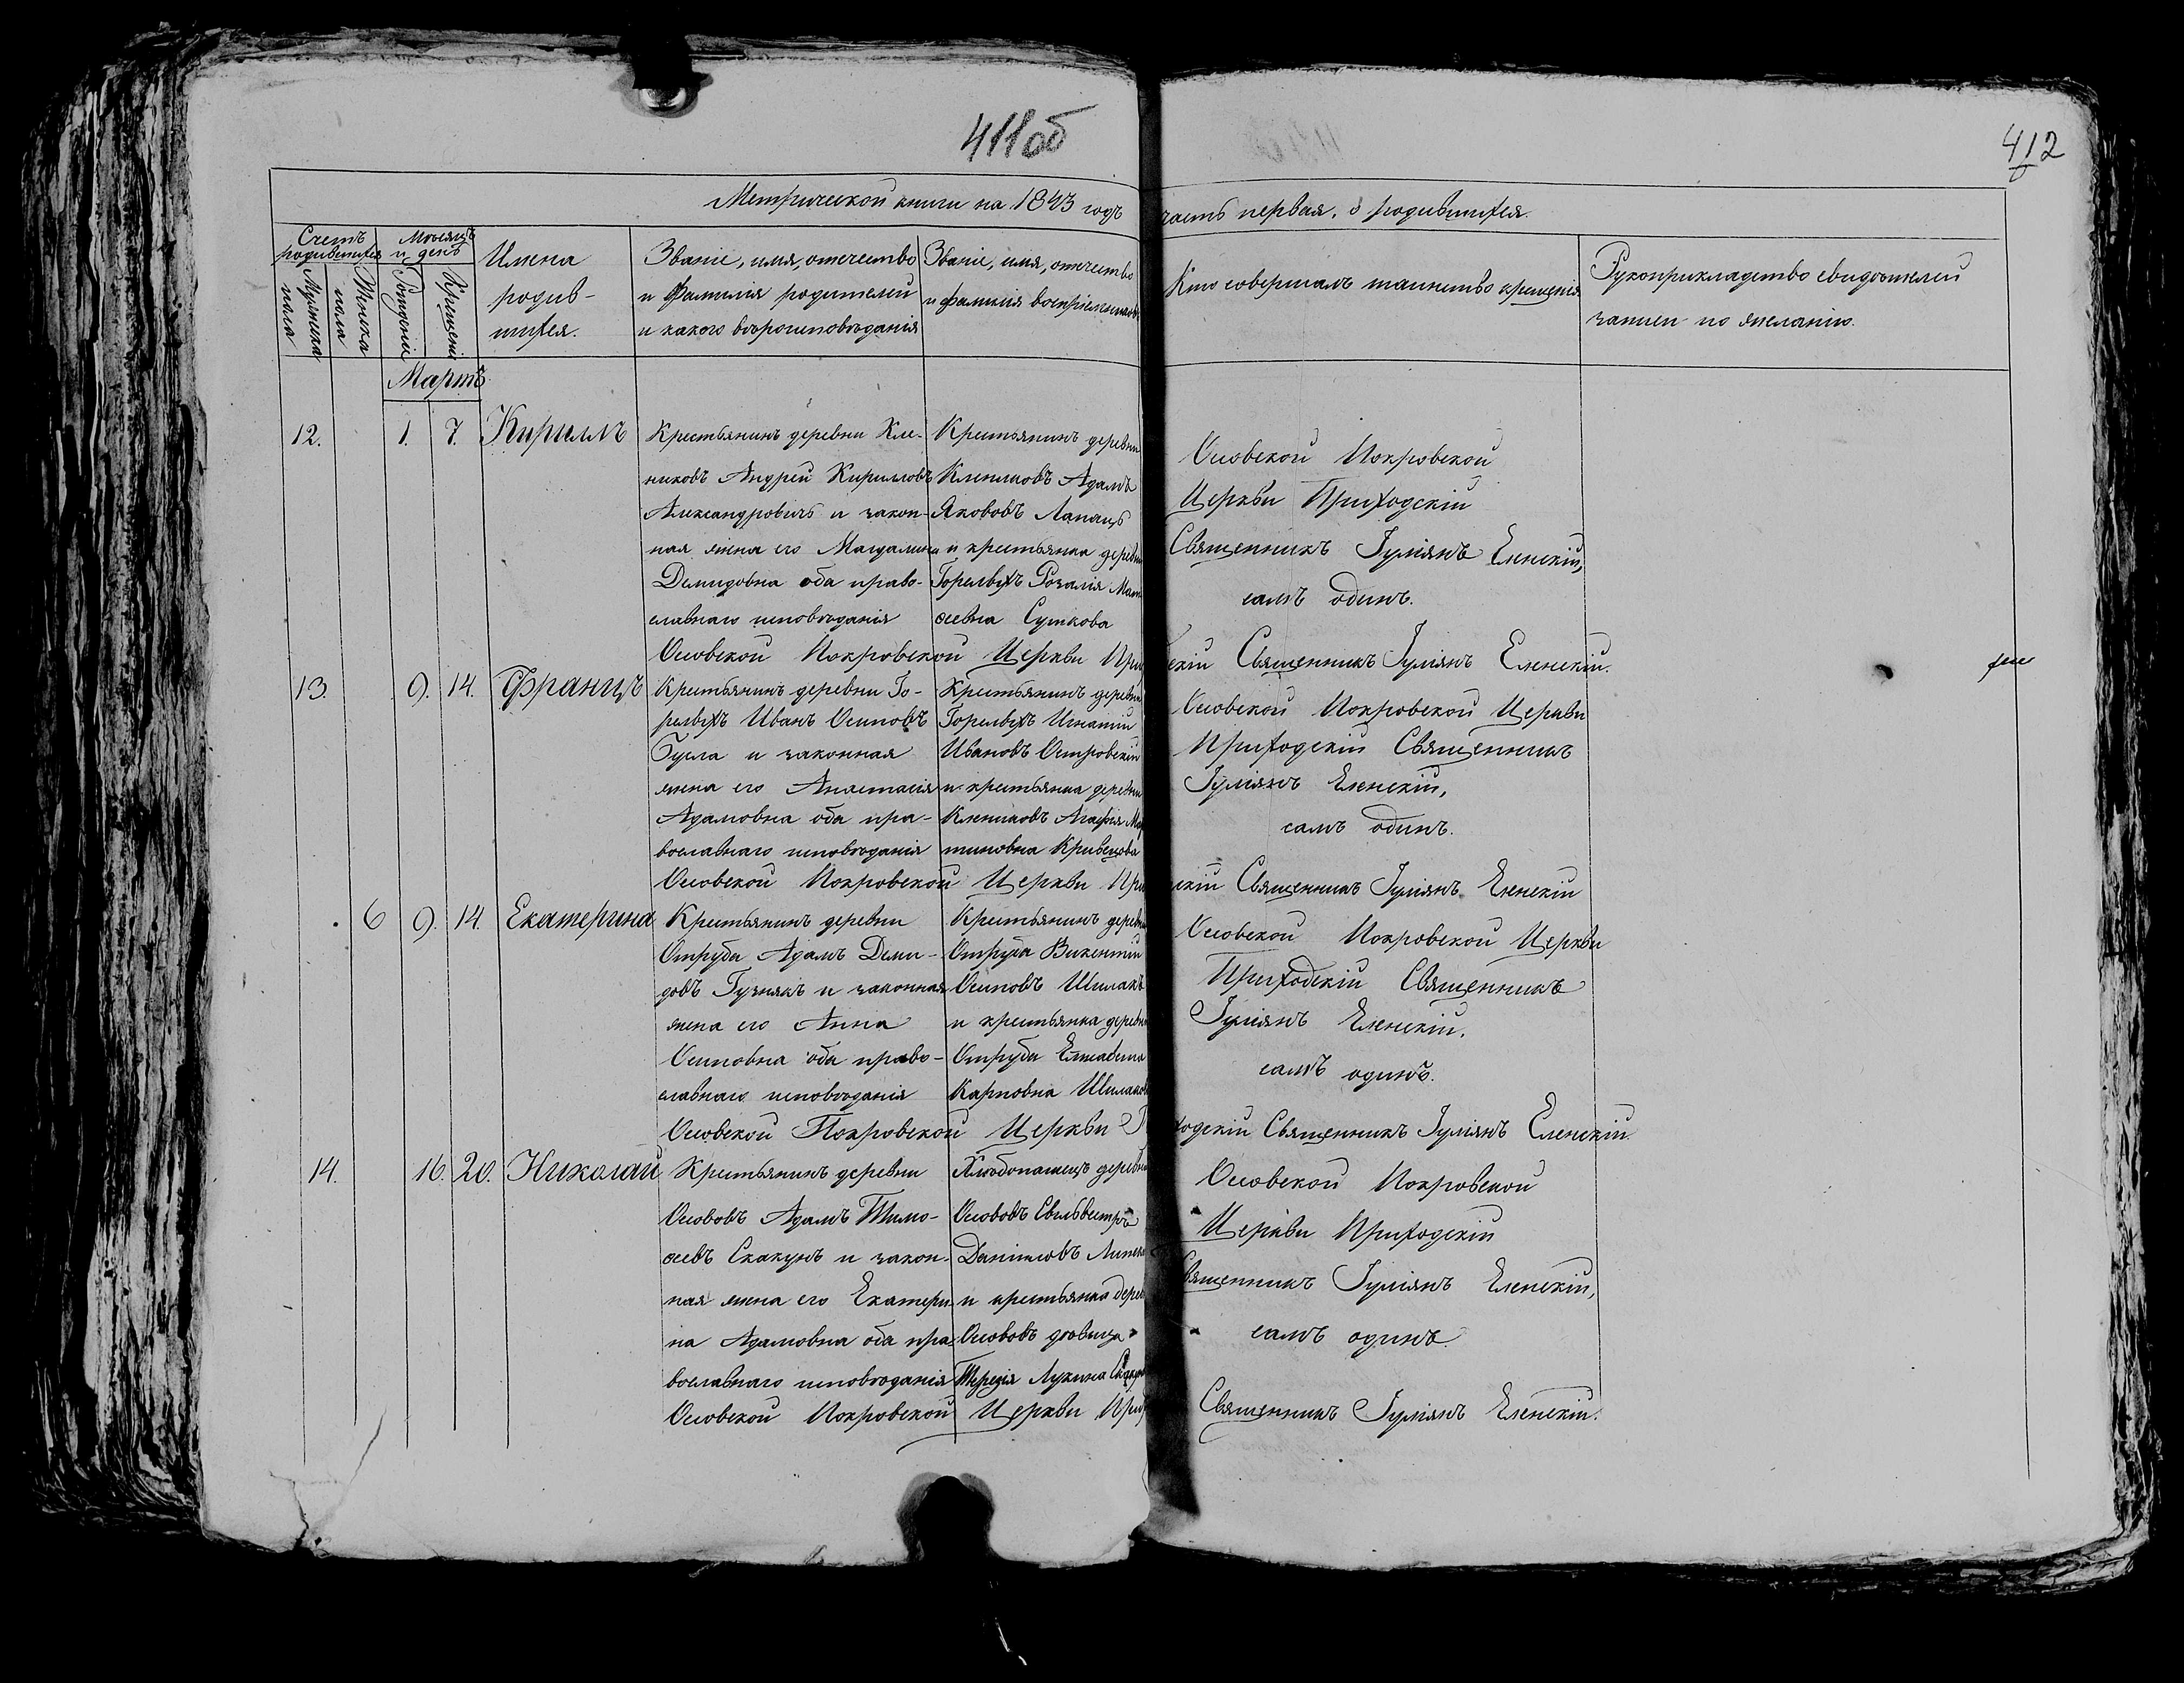 411об
412
Метрической книги на 1843 годъ часть первая, о родившихся.
Счетъ родившихся
Мужеска пола
Женска пола
Мѣсяцъ и день
Рожденія
Крещенія
Имена
родив-
шихся.
Званіе, имя, отчество
и фамилія родителей
и какого вѣроисповѣданія
Званіе, имя, отчество
и фамилія воспріемниковъ
Кто совершалъ таинство крещенія
Рукоприкладство свидѣтелей
записи по желанію.
Мартъ
12. 1. 7. Кириллъ
Крестьянинъ деревни Кле-
никовъ Андрей Кирилловъ
Александровичъ и закон-
ная жена его Магдалина
Демидовна оба право-
славнаго исповѣданія
Крестьянинъ деревни
Клениковъ Адамъ
Яковлевъ Лапацъ
и крестьянка деревни
Горелыхъ Розалія
Сушкова
Осовской Покровской
Церкви Приходскій
Священникъ Іуліянъ Еленскій,
самъ одинъ.
Осовской Покровской Церкви Священникъ Іуліянъ Еленскій.
13. 9. 14. Францъ
Крестьянинъ деревни Го-
релыхъ Иванъ Осиповъ
и законная
жена его Анастасія
Адамовна оба пра-
вославнаго исповѣданія
Крестьянинъ деревни
Горелыхъ Игнатій
Ивановъ Островскій
и крестьянка деревни
Клениковъ Агафія Мар
тиновна Кривецова
Осовской Покровской Церкви
Приходскій Священникъ
Іуліянъ Еленскій,
самъ одинъ.
Осовской Покровской Церкви Священникъ Іуліянъ Еленскій
6 9. 14. Екатерина
Крестьянинъ деревни
Отруба Адамъ Деми-
довъ Гузнякъ и законная
жена его Анна
Осиповна оба право-
славнаго исповѣданія
Крестьянинъ деревни
Отруба Викентій
Осиповъ Шилакъ
и крестьянка деревни
Отруба Елисавета
Карповна
Осовской Покровской Церкви
Приходскій Священникъ
Іуліянъ Еленскій.
самъ одинъ.
Осовской Покровской Церкви Священникъ Іуліянъ Еленскій.
14. 16. 20. Николай
Крестьянинъ деревни
Осововъ Адамъ Тимо-
ѳеевъ Скакунъ и закон-
ная жена его Екатери-
на Адамовна оба пра-
вославнаго исповѣданія
Хлѣбопашецъ деревни
Осововъ Сильвестръ
Даніиловъ
и крестьянка
Осововъ дѣвица
Терезія Лукина
Осовской Покровской
Церкви Приходскій
Священникъ Іуліянъ Еленскій,
самъ одинъ.
Осовской Покровской Церкви Священникъ Іуліянъ Еленскій.